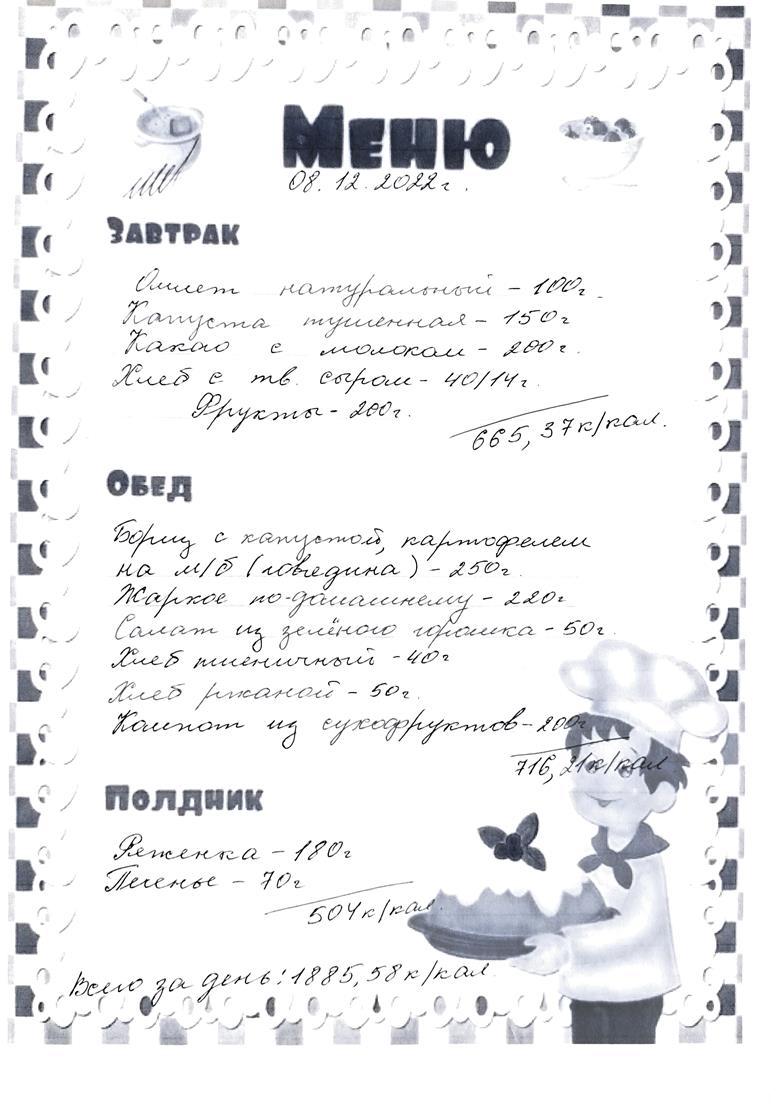 Меню
08.12.2022г.
Завтрак
Омлет натуральный - 100г.
Капуста тушенная - 150г
Какао с молоком - 200г.
Хлеб с тв. сыром - 40/14г.
Фрукты - 200г.
665,37к/кал.
Обед
Борщ с капустой, картофелем
на м/б (говедина) - 250г.
Жаркое по-домашнему - 220г
Салат из зелёного горошка - 50г.
Хлеб пшеничный - 40г
Хлеб ржаной - 50г.
Компот из сухофруктов - 200г
716,21к/кал
Полдник
Ряженка - 180г
Печенье - 70г
504к/кал.
Всего за день: 1885,58к/кал.